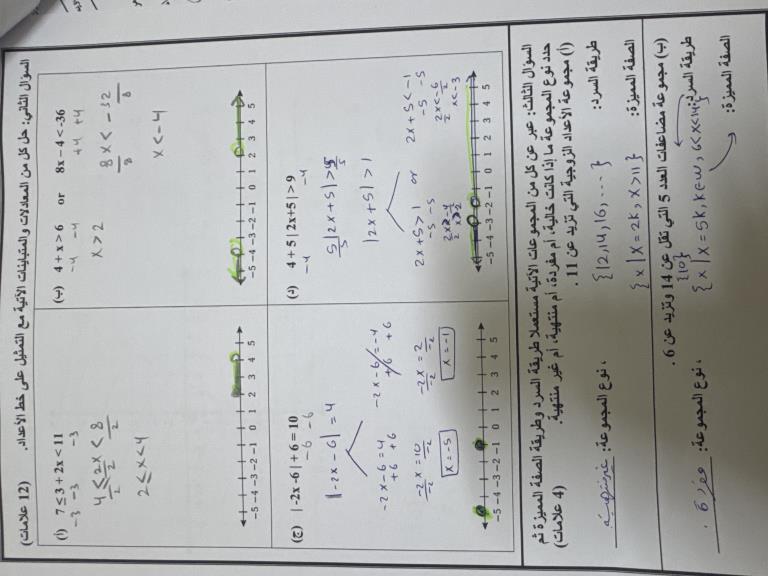 السؤال الثاني: حل كل من المعادلات والمتباينات الآتية مع التمثيل على خط الأعداد. (12 علامات)
(أ) 7 ≤ 3 + 2x < 11
-3 -3 -3
4 ≤ 2x < 8
2 2 2
2 ≤ x < 4
-5 -4 -3 -2 -1 0 1 2 3 4 5
(ب) 4 + x > 6 or 8x - 4 < -36
-4 -4 +4 +4
x > 2
8x < -32
8 8
x < -4
-5 -4 -3 -2 -1 0 1 2 3 4 5
(ج) | -2x -6 | + 6 = 10
-6 -6
|-2x - 6| = 4
-2x - 6 = 4
+6 +6
-2x - 6 = -4
+6 +6
-2x = 10
-2 -2
x = -5
-2x = 2
-2 -2
x = -1
-5 -4 -3 -2 -1 0 1 2 3 4 5
(د) 4 + 5 | 2x+5 | > 9
-4 -4
5 |2x + 5| > 5
5 5
|2x + 5| > 1
2x + 5 > 1 or 2x + 5 < -1
-5 -5 -5 -5
2x > -4
2 2
x > -2
2x < -6
2 2
x < -3
-5 -4 -3 -2 -1 0 1 2 3 4 5
السؤال الثالث: عبر عن كل من المجموعات الآتية مستعملا طريقة السرد وطريقة الصفة المميزة ثم
حدد نوع المجموعة ما إذا كانت خالية، أم مفردة، أم منتهية، أم غير منتهية. (4 علامات)
(أ) مجموعة الأعداد الزوجية التي تزيد عن 11.
طريقة السرد: {12, 14, 16, ...}
الصفة المميزة: {x | x = 2k, x > 11} ، نوع المجموعة: غير منتهية
(ب) مجموعة مضاعفات العدد 5 التي تقل عن 14 وتزيد عن 6.
طريقة السرد: {10}
{x | x = 5k, k ∈ w, 6 < x < 14}
الصفة المميزة: ، نوع المجموعة: مفردة